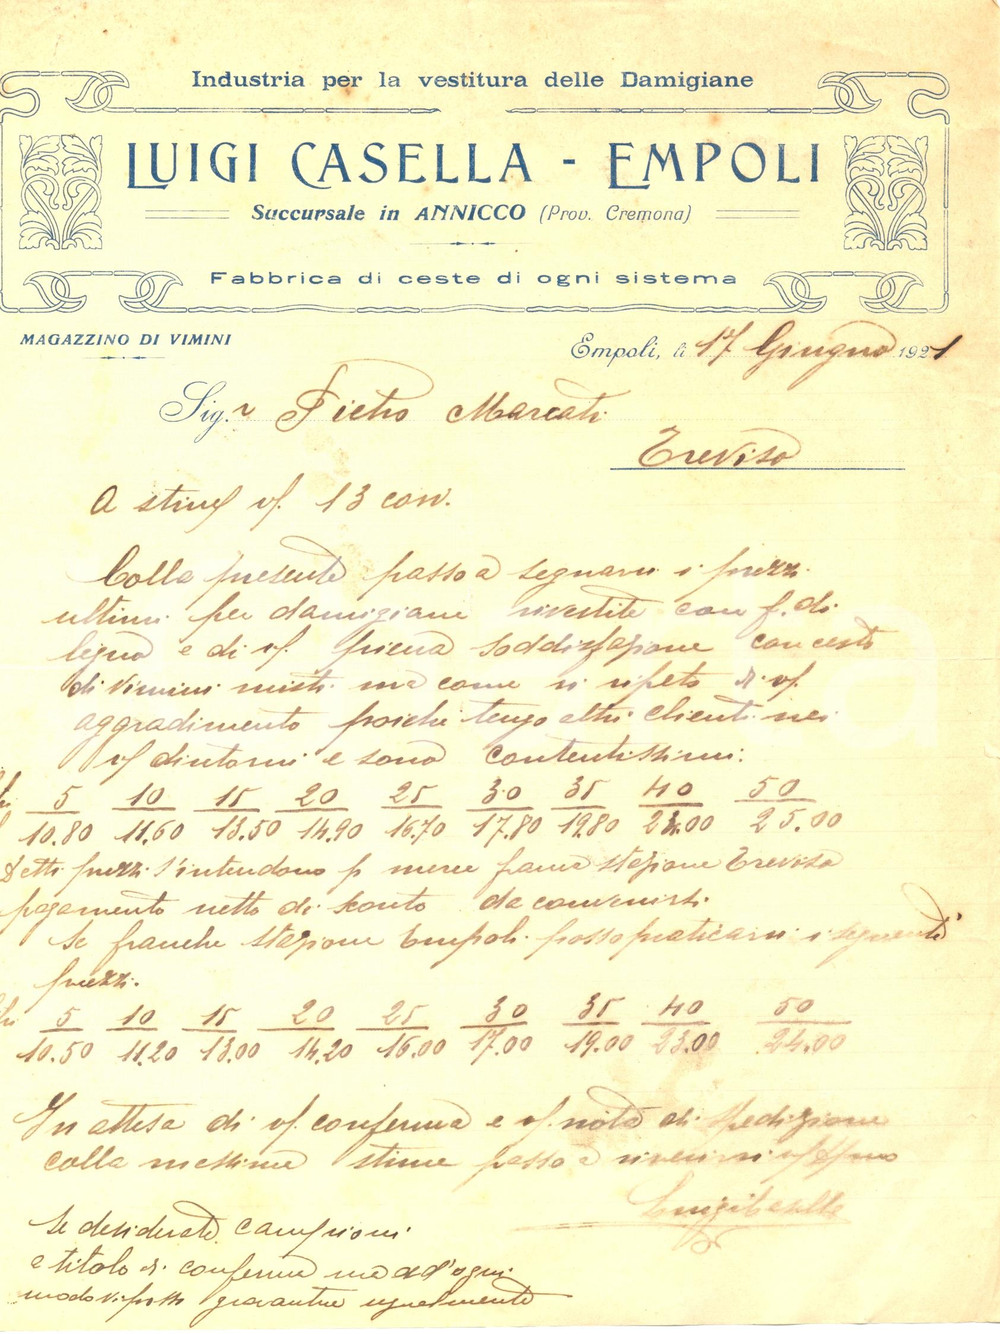 Industria per la vestitura delle Damigiane
LUIGI CASELLA - EMPOLI
Succursale in ANNICCO (Prov. Cremona)
Fabbrica di ceste di ogni sistema
MAGAZZINO DI VIMINI
Empoli, li 17 Giugno 1921
Sig.r Pietro Marcati
Treviso
A stim vs. 13 corr.
Colla presente passo a segnarvi i prezzi
ultimi per damigiane rivestite con f. di
legno e di vs. piena soddisfazione con ceste
di vimini misti ma come vi ripeto di vs.
aggradimento poiche tengo altri clienti nei
vs dintorni e sono contentissimi:
5 10 15 20 25 30 35 40 50
10.80 11.60 13.50 14.90 16.70 17.80 19.80 24.00 25.00
Detti prezzi s'intendono p merce franca stazione Treviso
pagamento netto di sconto da convenirsi.
Se franche stazione Empoli posso praticarvi i seguenti
prezzi.
5 10 15 20 25 30 35 40 50
10.50 11.20 13.00 14.20 16.00 17.00 19.00 23.00 24.00
In attesa di vs. conferma e vs. nota di spedizione
colla massima stima passo a riverirvi
Luigi Casella
Se desiderate campioni
a titolo di conferma ma ad'ogni
modo vi posso garantire ugualmente